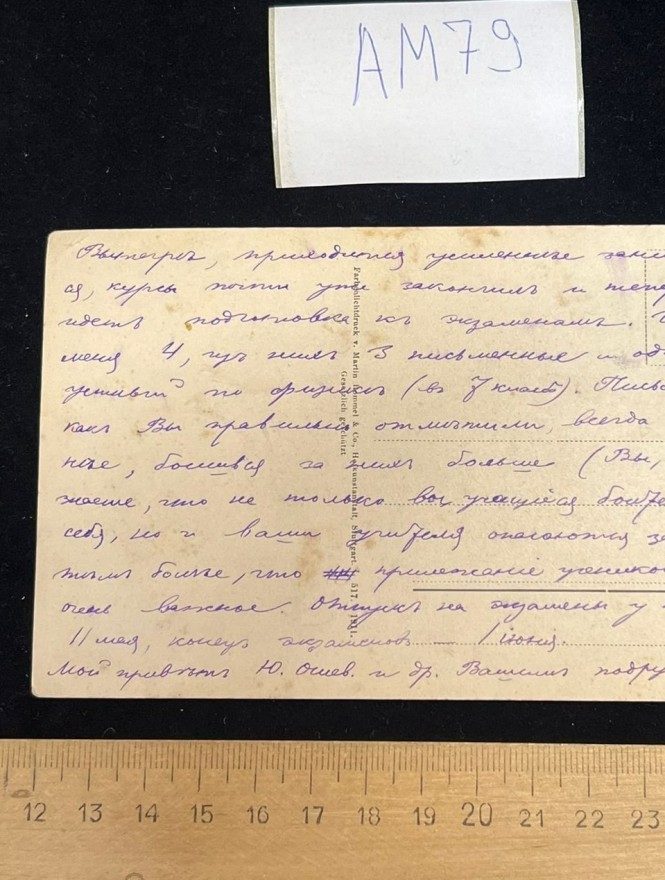 AM79
приходится усиленные зани
ая, курсы почти уже закончилъ и
идетъ подготовка къ экзаменамъ.
меня 4, изъ нихъ 3 письменные и
по физикѣ (въ 7 классѣ).
какъ Вы правильно отмѣтили, всегда
за нихъ больше (Вы,
что не только вы, учащіеся
себя, но и ваши учителя опасаются за
болѣе, что прилежаніе
очень важное. Отпускъ на экзамены у
11 мая, конецъ экзаменовъ — 1 іюня.
Мой привѣтъ Ю. и др. Вашимъ
Farbenlichtdruck v. Martin Rommel & Co., Hofkunstanstalt, Stuttgart 517. 1911.
Gesetzlich geschützt
12 13 14 15 16 17 18 19 20 21 22 23